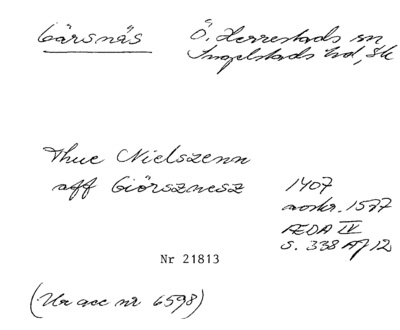 Gärsnäs Ö. Herrestads sn
Ingelstads hd, Sk
Thue Nielszenn
aff Giörsznesz 1407
avskr. 1577
ÆDA IV
s. 338 Af 12
Nr 21813
(Ur acc nr 6598)